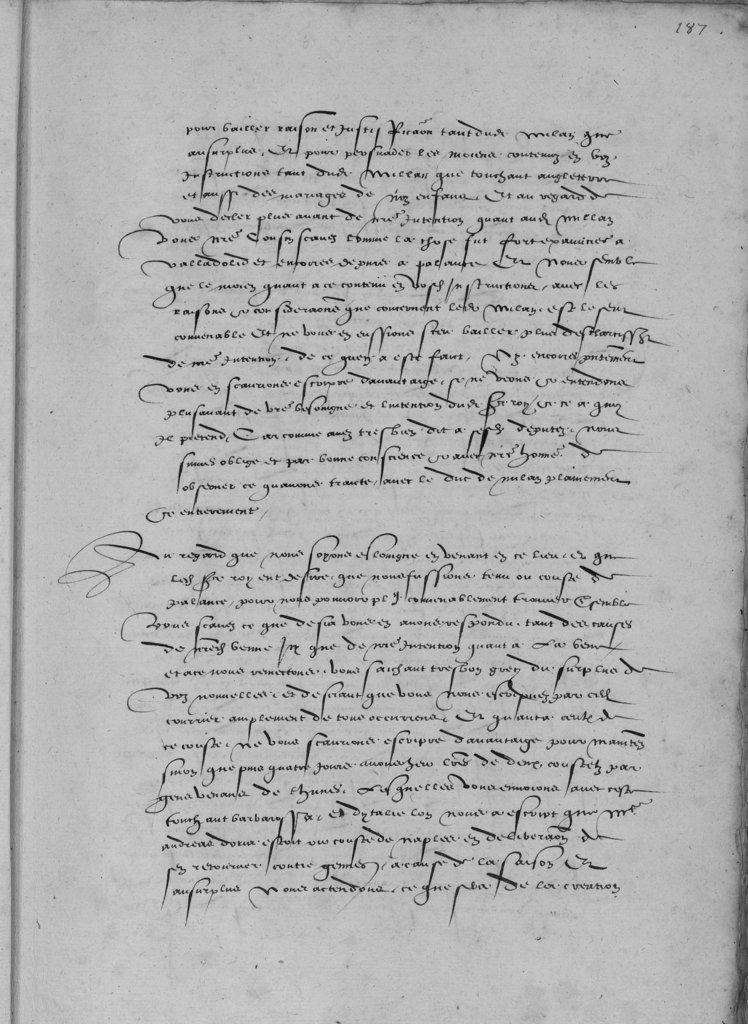 187
pour bailler raison et justifficaõn tant dudit Milan que
au surplus. Et pour persuader les moiens contenuz en voz
Instructions tant dudit Millan que touchant angleterre
et aussi des mariages de noz enfans Et au regard de
vous decler plus avant de nre Intention quant audit Millan
vous nre Cousin scavez comme la chose fut fort examinee a
valladolid et encores depuis a palance Et Nous semble
que le moien quant a ce contenu en vosd Instructions avec les
raisons et consideraõns que concernent led Milan, est le seur
convenable Et ne vous en eussions sceu bailler plus desclarcissement
de nre Intention, de ce quen a este fait, Ny encores presentement
vous en scaurions escripre davantaige, se ne veons et entendons
plusavant de vre besoingne et lintention dudit Sr roy, et ce a quoy
Il pretend, Car comme avez tresbien dit a sesd deputez, nous
sumes oblige et par bonne conscience et avec nre honneur de
observer ce quavons traicte avec le duc de milan plainement
Et entierement,
Au regard que nous soyons esloingne en venant en ce lieu, et que
led Sr roy eut desire que nous fussions tenu ou couste de
palance, pour nous povoir plus convenablement trouver Ensemble
Vous scavez ce que desia vous en avons respondu, tant des causes
de nred venue Icy que de nre Intention quant a La veue
et a ce nous remectons, vous saichant tresbon grey du surplus de
voz nouvelles, et desirant que vous nous escripvez par cest
courrier amplement de tous occurrens, Et quant a ceulx de
ce couste, ne vous scaurions escripre davantaige pour maintenant
sinon que puis quatre jours avons heu lres de deux coustez par
gens venans de thunes, Lesquelles vous envoions avec ceste
touchant barbarossa, et dytalie lon nous a escript que messe
andreas doria estoit ou couste de naples en deliberaõn de
sen retourner contre gennes, a cause de la saison Et
au surplus Nous actendons, ce que sera de la creation